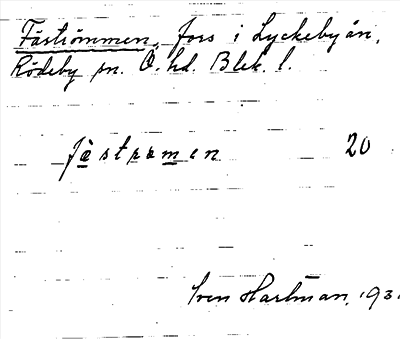 Fäströmmen, fors i Lyckebyån,
Rödeby sn. Ö. hd. Blek. l.
fästrømen 20
Sven Hartman, 193